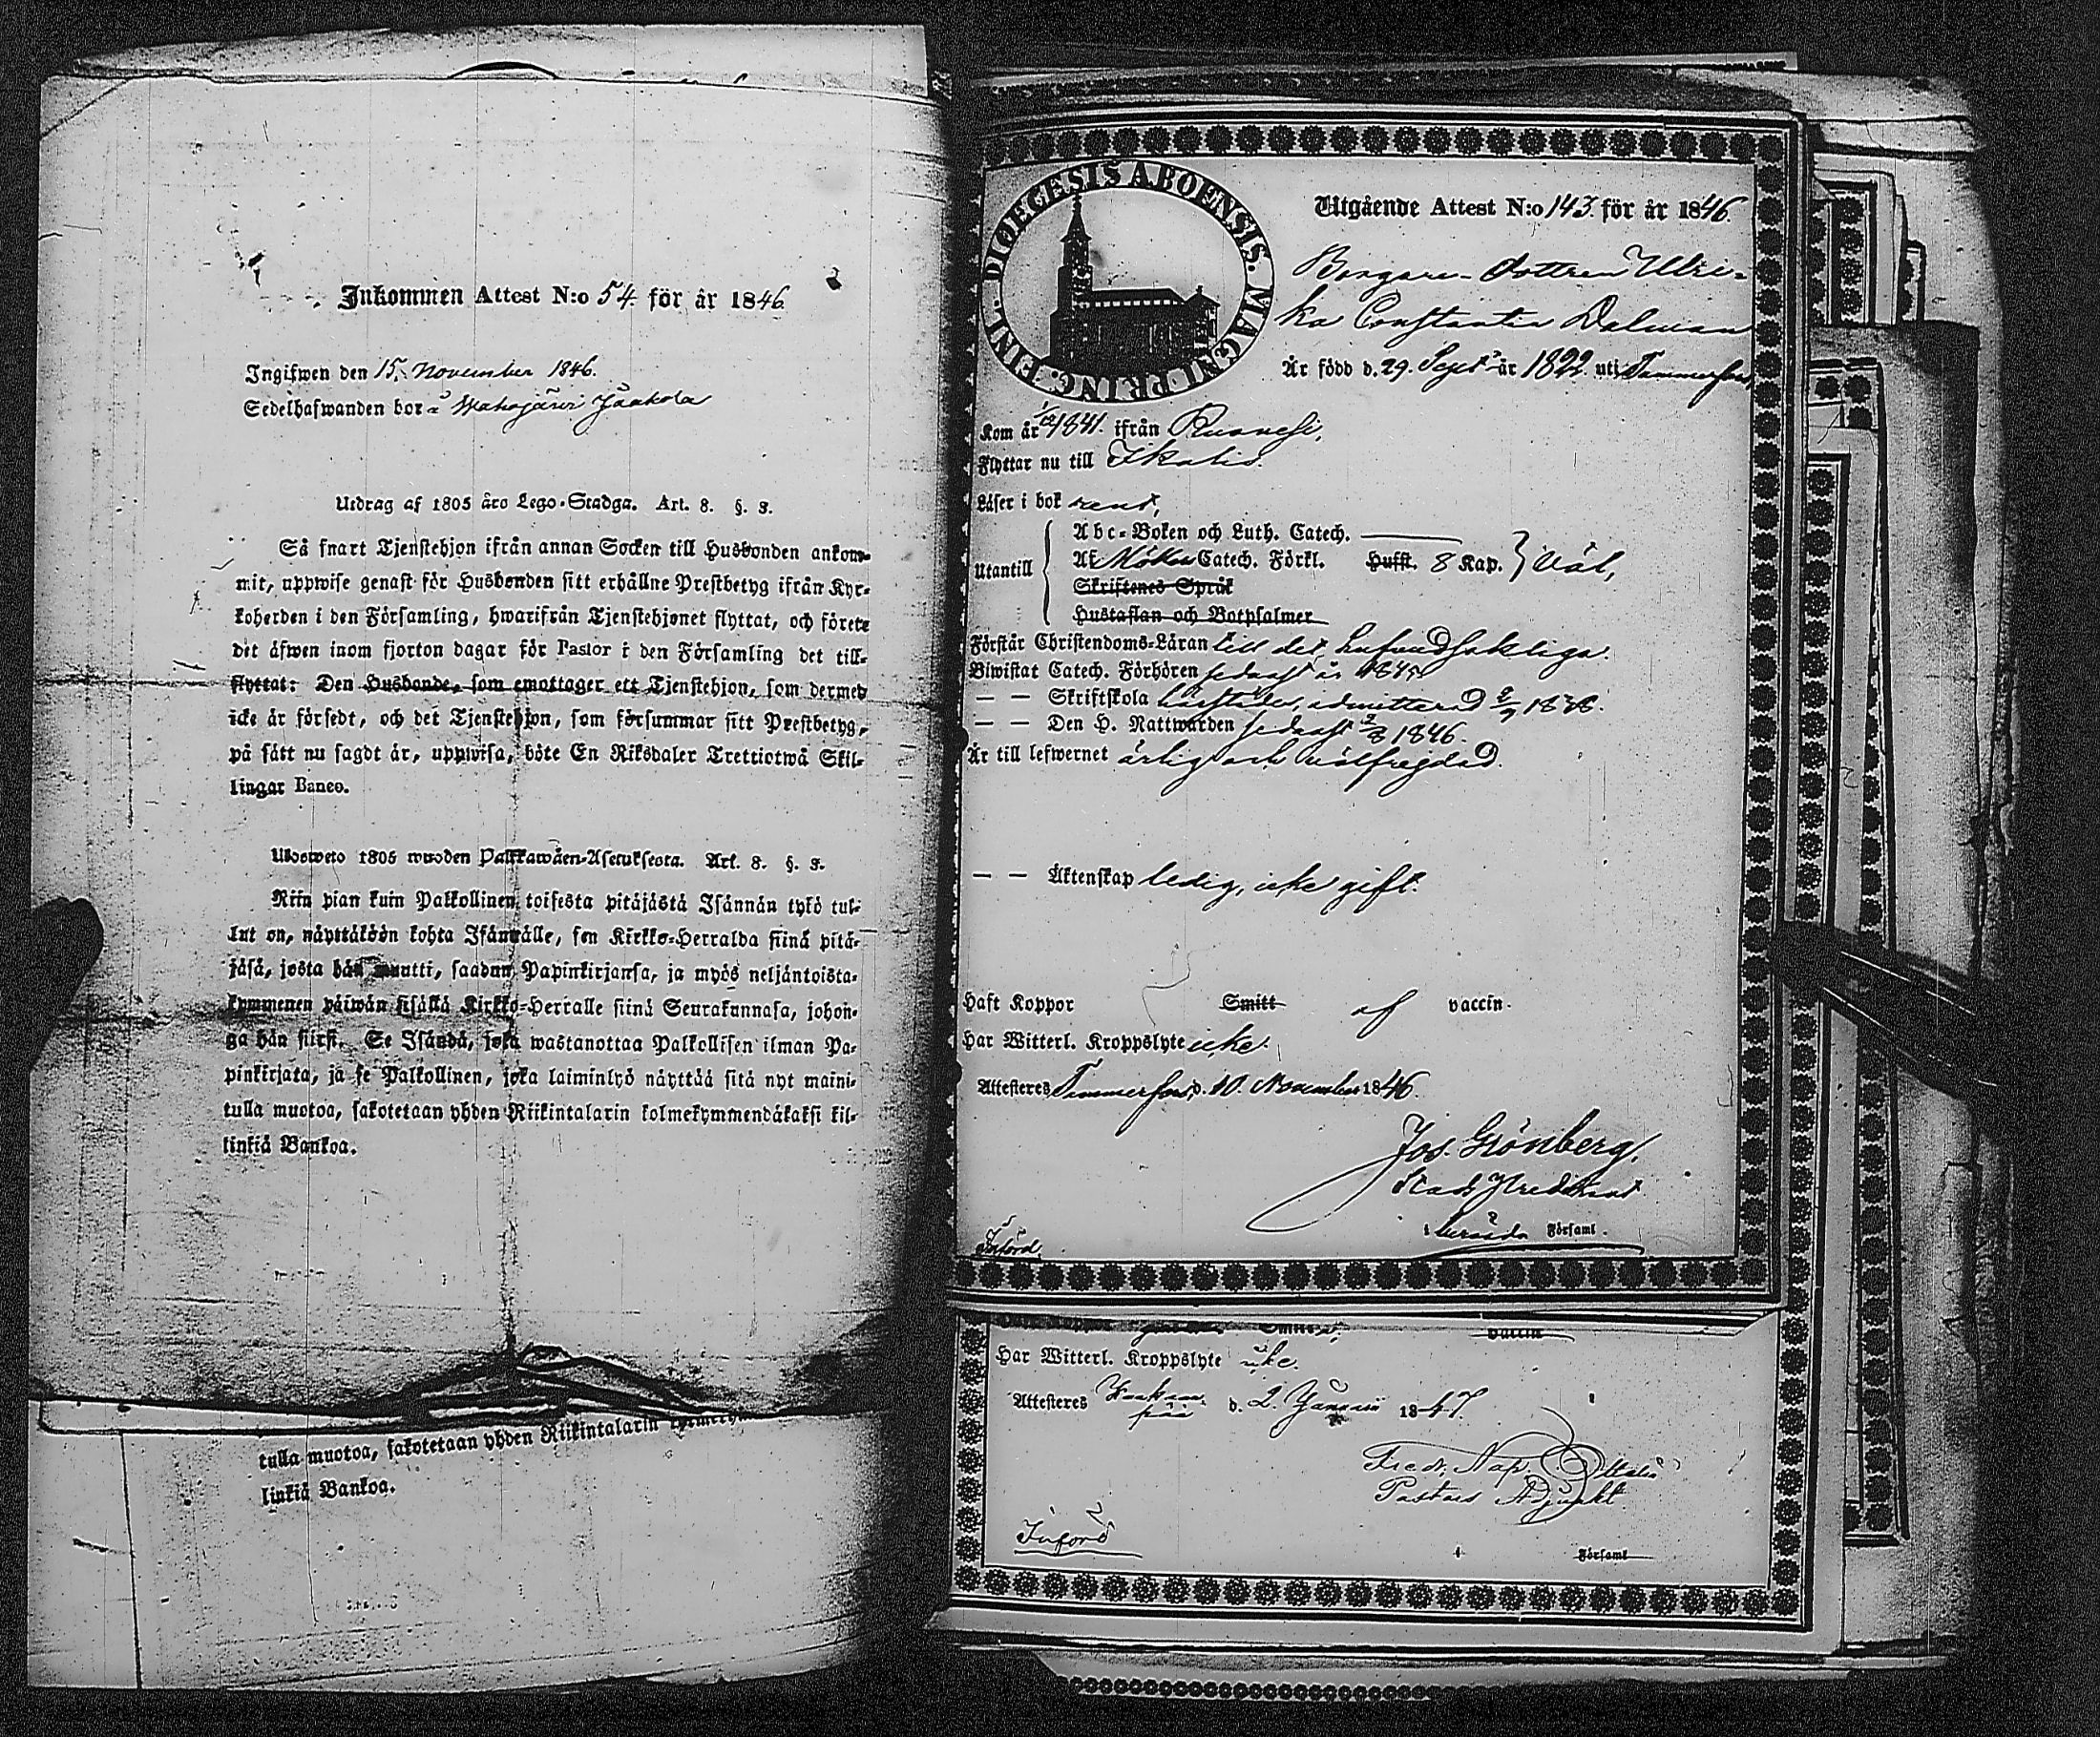 Inkommen Attest N:o 54 för år 1846
Ingifwen den 15. November 1846.
Sedelhafwanden bor å Jaakola
Utdrag af 1805 års Lego-Stadga. Art. 8. §. 3.
Så snart Tjenstehjon ifrån annan Socken till Husbonden ankom-
mit, uppwise genast för Husbonden sitt erhållne Prestbetyg ifrån Kyr-
koherden i den Församling, hwarifrån Tjenstehjonet flyttat, och förete
det äfwen inom fjorton dagar för Pastor i den Församling det till-
flyttat: Den Husbonde, som emottager ett Tjenstehjon, som dermed
icke är försedt, och det Tjenstehjon, som försummar sitt Prestbetyg,
på sätt nu sagdt är, uppwisa, böte En Riksdaler Trettiotwå Skil-
lingar Banco.
Ulosweto 1805 wuoden Palkkawäen-Asetuksesta. Art. 8. §. 3.
Niin pian kuin Palkollinen toisesta pitäjästä Isännän tykö tul-
lut on, näyttäköön kohta Isännälle, sen Kirkko-Herralda siinä pitä-
jäsä, josta hän muutti, saadun Papinkirjansa, ja myös neljäntoista-
kymmenen päiwän sisällä Kirkko-Herralle siinä Seurakunnasa, johon-
ga hän siirsi. Se Isändä, joka wastanottaa Palkollisen ilman Pa-
pinkirjata, ja se Palkollinen, joka laiminlyö näyttää sitä nyt maini-
tulla muotoa, sakotetaan yhden Riikintalarin kolmekymmendäkaksi kil-
linkiä Bankoa.
tulla muotoa, sakotetaan yhden Riikintalarin
linkiä Bankoa.
DIOECESIS ABOENSIS. MAGNI PRINC. FINL.
Utgående Attest N:o 143. för år 1846.
Borgare-dottren Ulri-
ka Constantia Dalman
Är född d. 29. Sept. år 1822. uti Tammerfors
Kom år 1841. ifrån Ruovesi,
Flyttar nu till Ikalis.
Läser i bok rent,
Utantill
Abc-Boken och Luth. Catech.
Af Catech. Förkl. Hufst. 8 Kap. väl,
Skriftenes Språk
Hustaflan och Botpsalmer
Förstår Christendoms-Läran till det hufvudsakliga.
Biwistat Catech. Förhören sednast år
— — Skriftskola härstädes, admitterad
— — Den H. Nattwarden sednast 1846.
Är till lefwernet ärlig och välfrejdad.
— — Äktenskap ledig, icke gift.
Haft Koppor Smitt af vaccin.
Har Witterl. Kroppslyte icke.
Attesteres Tammerfors d. 10. November 1846.
Jos. Grönberg,
i Församl.
Införd
Smitt vaccin
Har Witterl. Kroppslyte icke.
Attesteres d. 2 Januarii 1847.
Fredr. Nap.
Pastors Adjunkt
Införd
i Församl